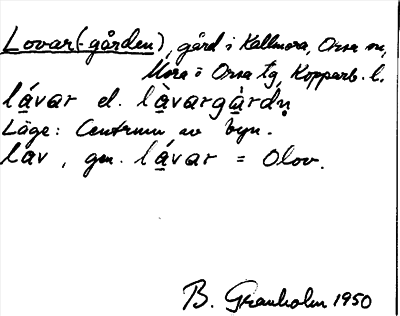 Lovar(-gården), gård i Kallmora, Orsa sn,
Mora o Orsa tg, Kopparb. l.
lávar el. làvargàrdṇ
Läge: Centrum av byn.
lav, gen. lávar = Olov.
B. Granholm 1950